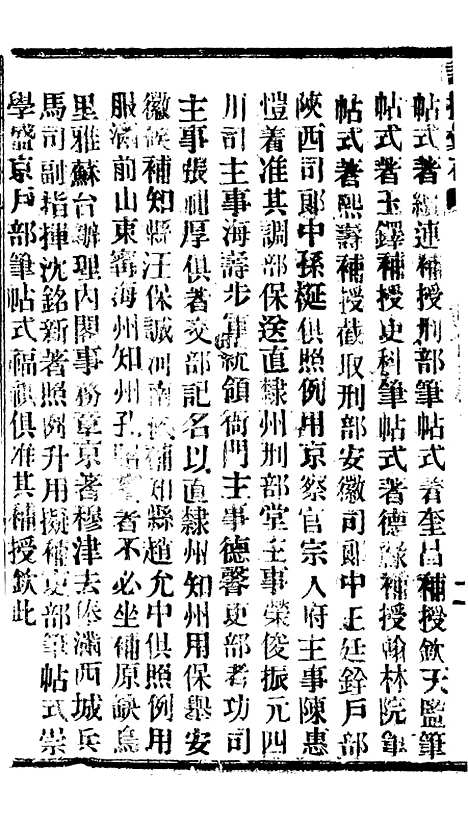 帖式著繼連補授刑部筆帖式著奎昌補授欽天監筆
帖式著玉鐸補授吏科筆帖式著德綠補授翰林院筆
帖式著熙壽補授截取刑部安徽司郞中王廷銓戶部
陝西司郞中孫梃俱照例用京察官宗人府主事陳惠
愷着准其調部保送直隸州刑部堂主事榮俊振元四
川司主事海壽步軍統領衙門主事德馨吏部考功司
主事張厚俱著交部記名以直隸州知州用保舉安
徽候補知縣汪保誠河南候補知縣趙允中俱照例用
服滿前山東寗海州知州孔著不必坐補原缺烏
里雅蘇台辦理內閣事務章京著穆津去俸滿西城兵
馬司副指揮沈銘新著照例升用擬補吏部筆帖式崇
學盛京戶部筆帖式福俱准其補授欽此